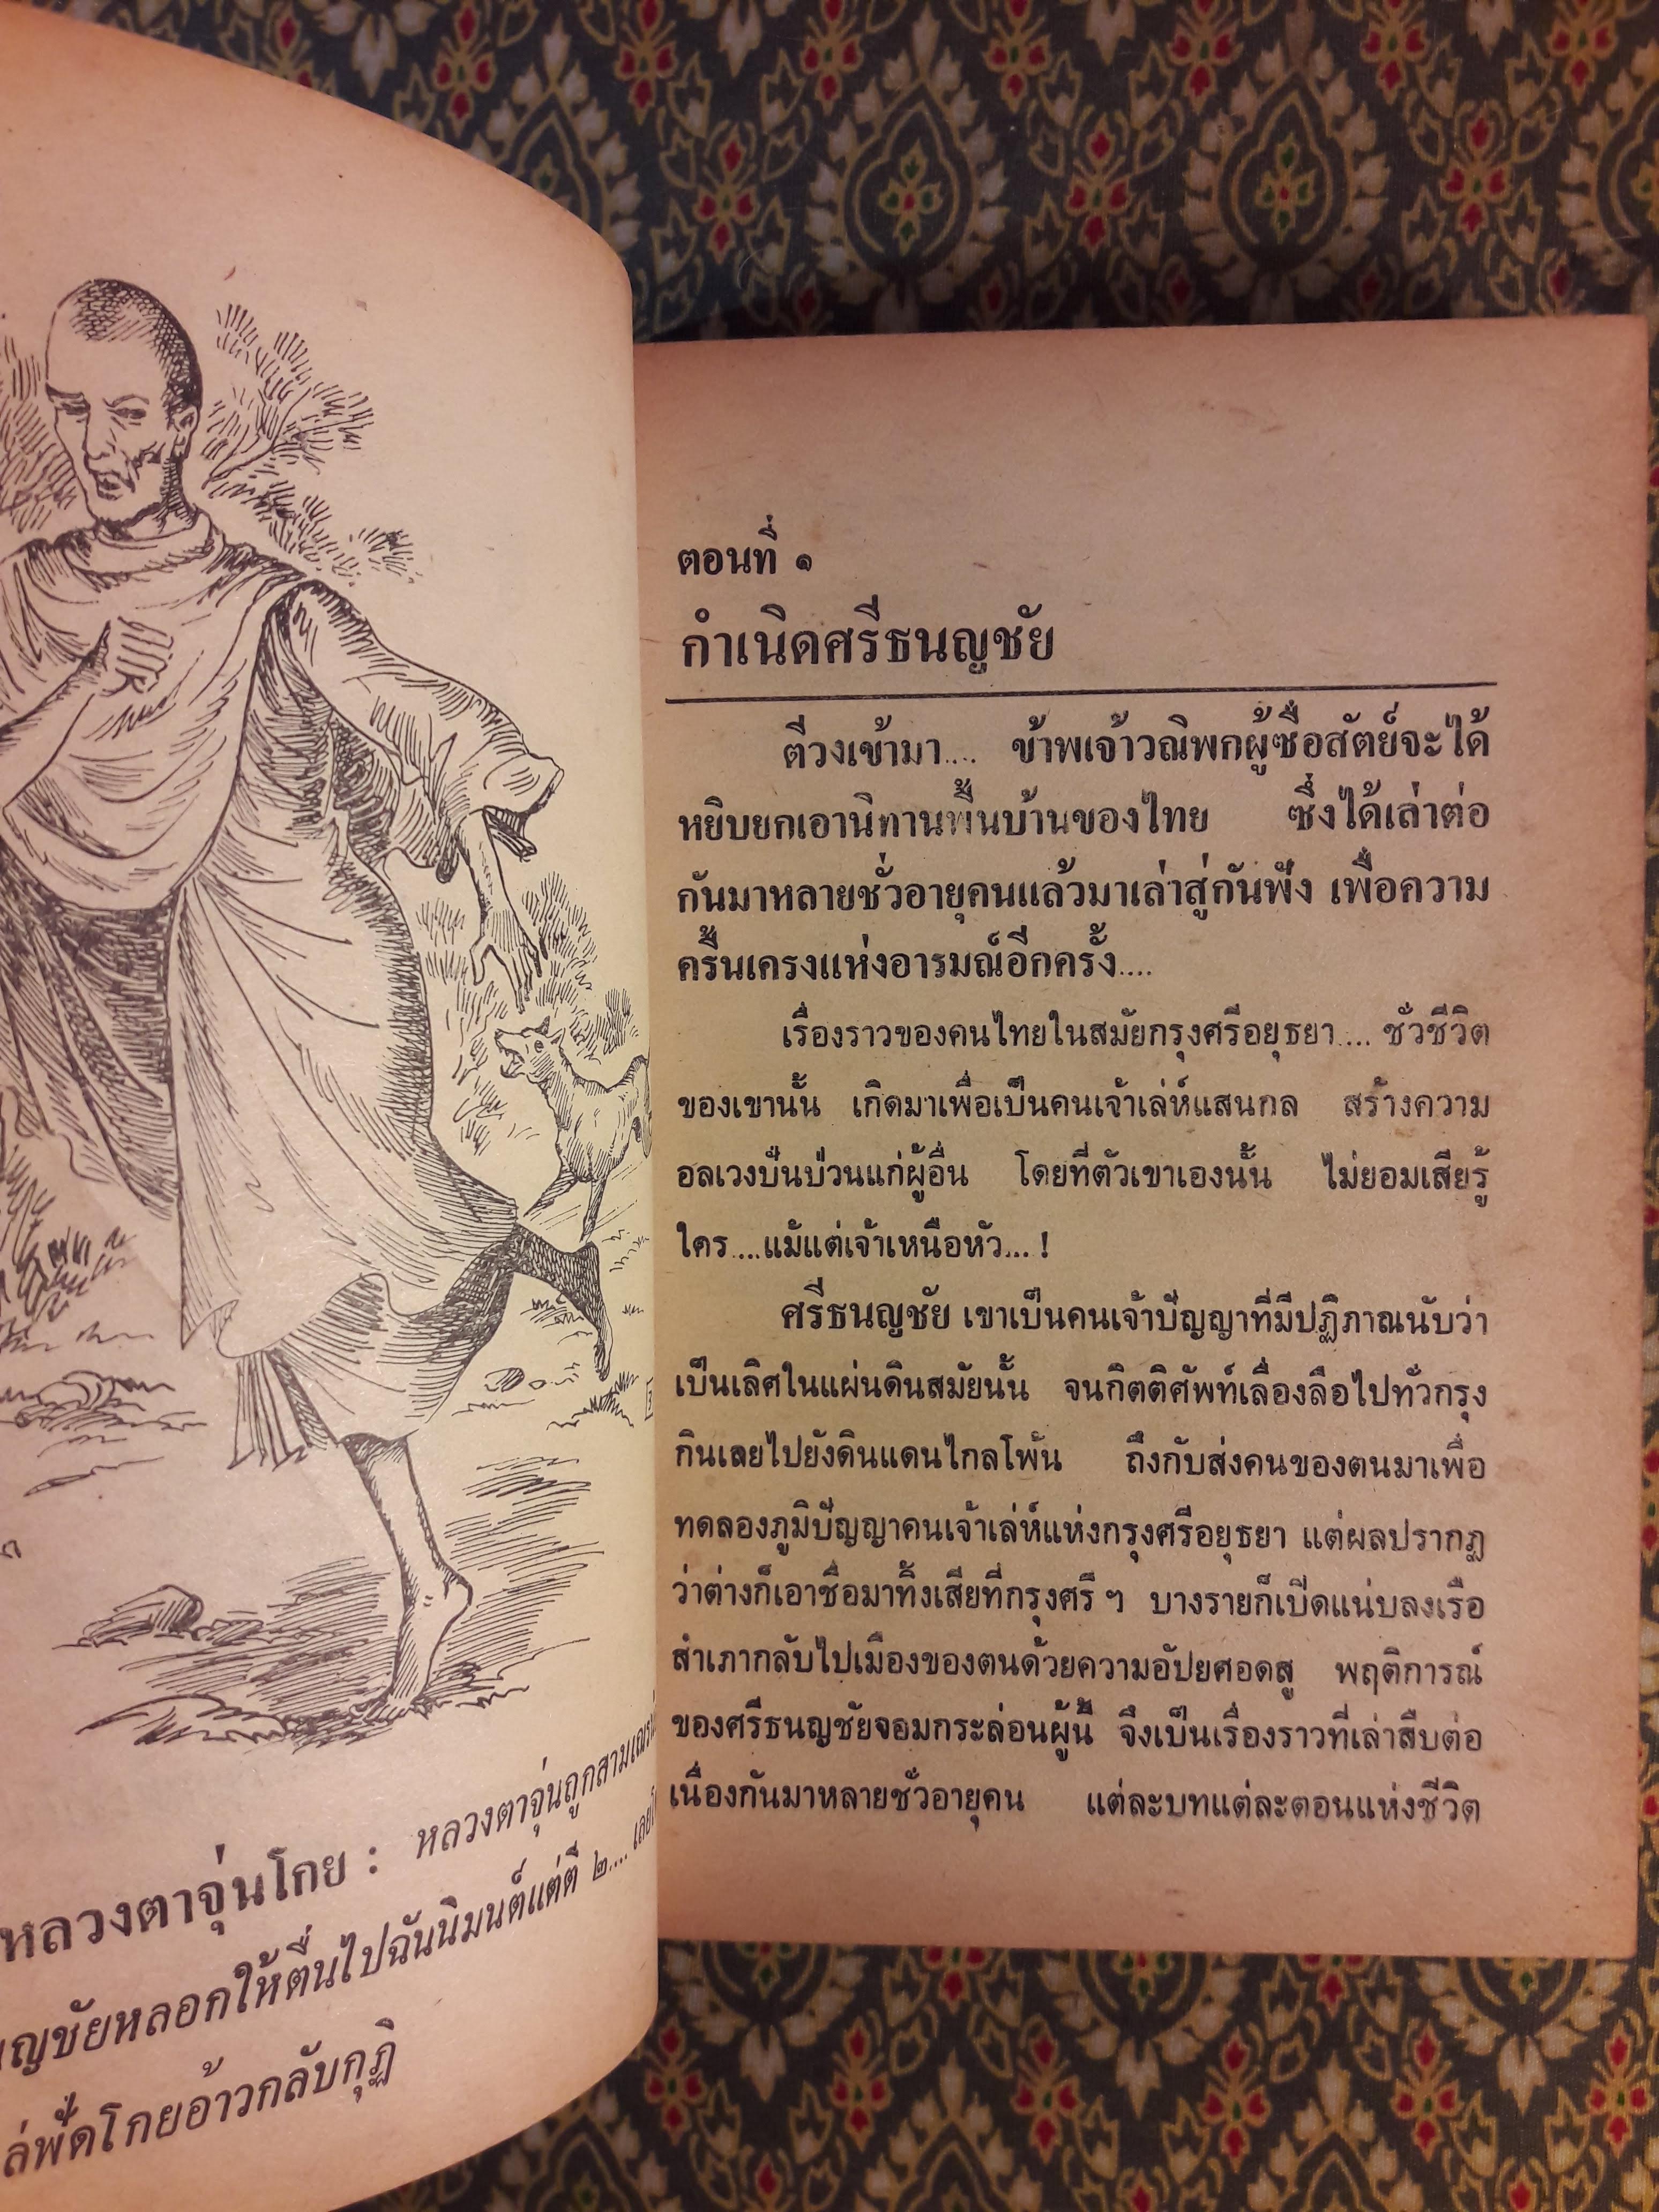 หลวงตาจุ่นโกย : หลวงตาจุ่นถูกสามเณร
ญชัยหลอกให้ตื่นไปฉันนิมนต์แต่ตี ๒....
ล่พัดโกยอ้าวกลับกุฏิ
ตอนที่ ๑
กำเนิดศรีธนญชัย
ตีวงเข้ามา.... ข้าพเจ้าวณิพกผู้ซื่อสัตย์จะได้
หยิบยกเอานิทานพื้นบ้านของไทย ซึ่งได้เล่าต่อ
กันมาหลายชั่วอายุคนแล้วมาเล่าสู่กันฟัง เพื่อความ
ครื้นเครงแห่งอารมณ์อีกครั้ง....
เรื่องราวของคนไทยในสมัยกรุงศรีอยุธยา.... ชั่วชีวิต
ของเขานั้น เกิดมาเพื่อเป็นคนเจ้าเล่ห์แสนกล สร้างความ
อลเวงปั่นป่วนแก่ผู้อื่น โดยที่ตัวเขาเองนั้น ไม่ยอมเสียรู้
ใคร....แม้แต่เจ้าเหนือหัว....!
ศรีธนญชัย เขาเป็นคนเจ้าปัญญาที่มีปฏิภาณนับว่า
เป็นเลิศในแผ่นดินสมัยนั้น จนกิตติศัพท์เลื่องลือไปทั่วกรุง
กินเลยไปยังดินแดนไกลโพ้น ถึงกับส่งคนของตนมาเพื่อ
ทดลองภูมิปัญญาคนเจ้าเล่ห์แห่งกรุงศรีอยุธยา แต่ผลปรากฏ
ว่าต่างก็เอาชื่อมาทิ้งเสียที่กรุงศรี ฯ บางรายก็เปิดแน่บลงเรือ
สำเภากลับไปเมืองของตนด้วยความอัปยศอดสู พฤติการณ์
ของศรีธนญชัยจอมกระล่อนผู้นี้ จึงเป็นเรื่องราวที่เล่าสืบต่อ
เนื่องกันมาหลายชั่วอายุคน แต่ละบทแต่ละตอนแห่งชีวิต